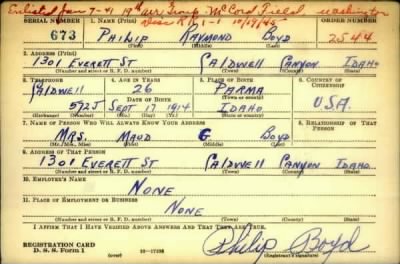 Enlisted Jan 7-41 19th Air Group McCord Field Washington
Disc R R 1-1 10/17/45
SERIAL NUMBER 1. Name (Print) ORDER NUMBER
673 Philip Raymond Boyd 2544
(First) (Middle) (Last)
2. Address (Print)
1301 Everett St Caldwell Canyon Idaho
(Number and street or R. F. D. number) (Town) (County) (State)
3. Telephone 4. Age in Years 5. Place of Birth 6. Country of Citizenship
Caldwell 26 Parma
Date of Birth
572J Sept 17 1914 Idaho U.S.A.
(Exchange) (Number) (Mo.) (Day) (Yr.) (State or country)
7. Name of Person Who Will Always Know Your Address 8. Relationship of That Person
Mrs. Maud G Boyd
(Mr., Mrs., Miss) (First) (Middle) (Last)
9. Address of That Person
1301 Everett St Caldwell Canyon Idaho
(Number and street or R. F. D. number) (Town) (County) (State)
10. Employer's Name
None
11. Place of Employment or Business
None
(Number and street or R. F. D. number) (Town) (County) (State)
I Affirm That I Have Verified Above Answers and That They Are True.
Registration Card
D. S. S. Form 1 Philip Boyd